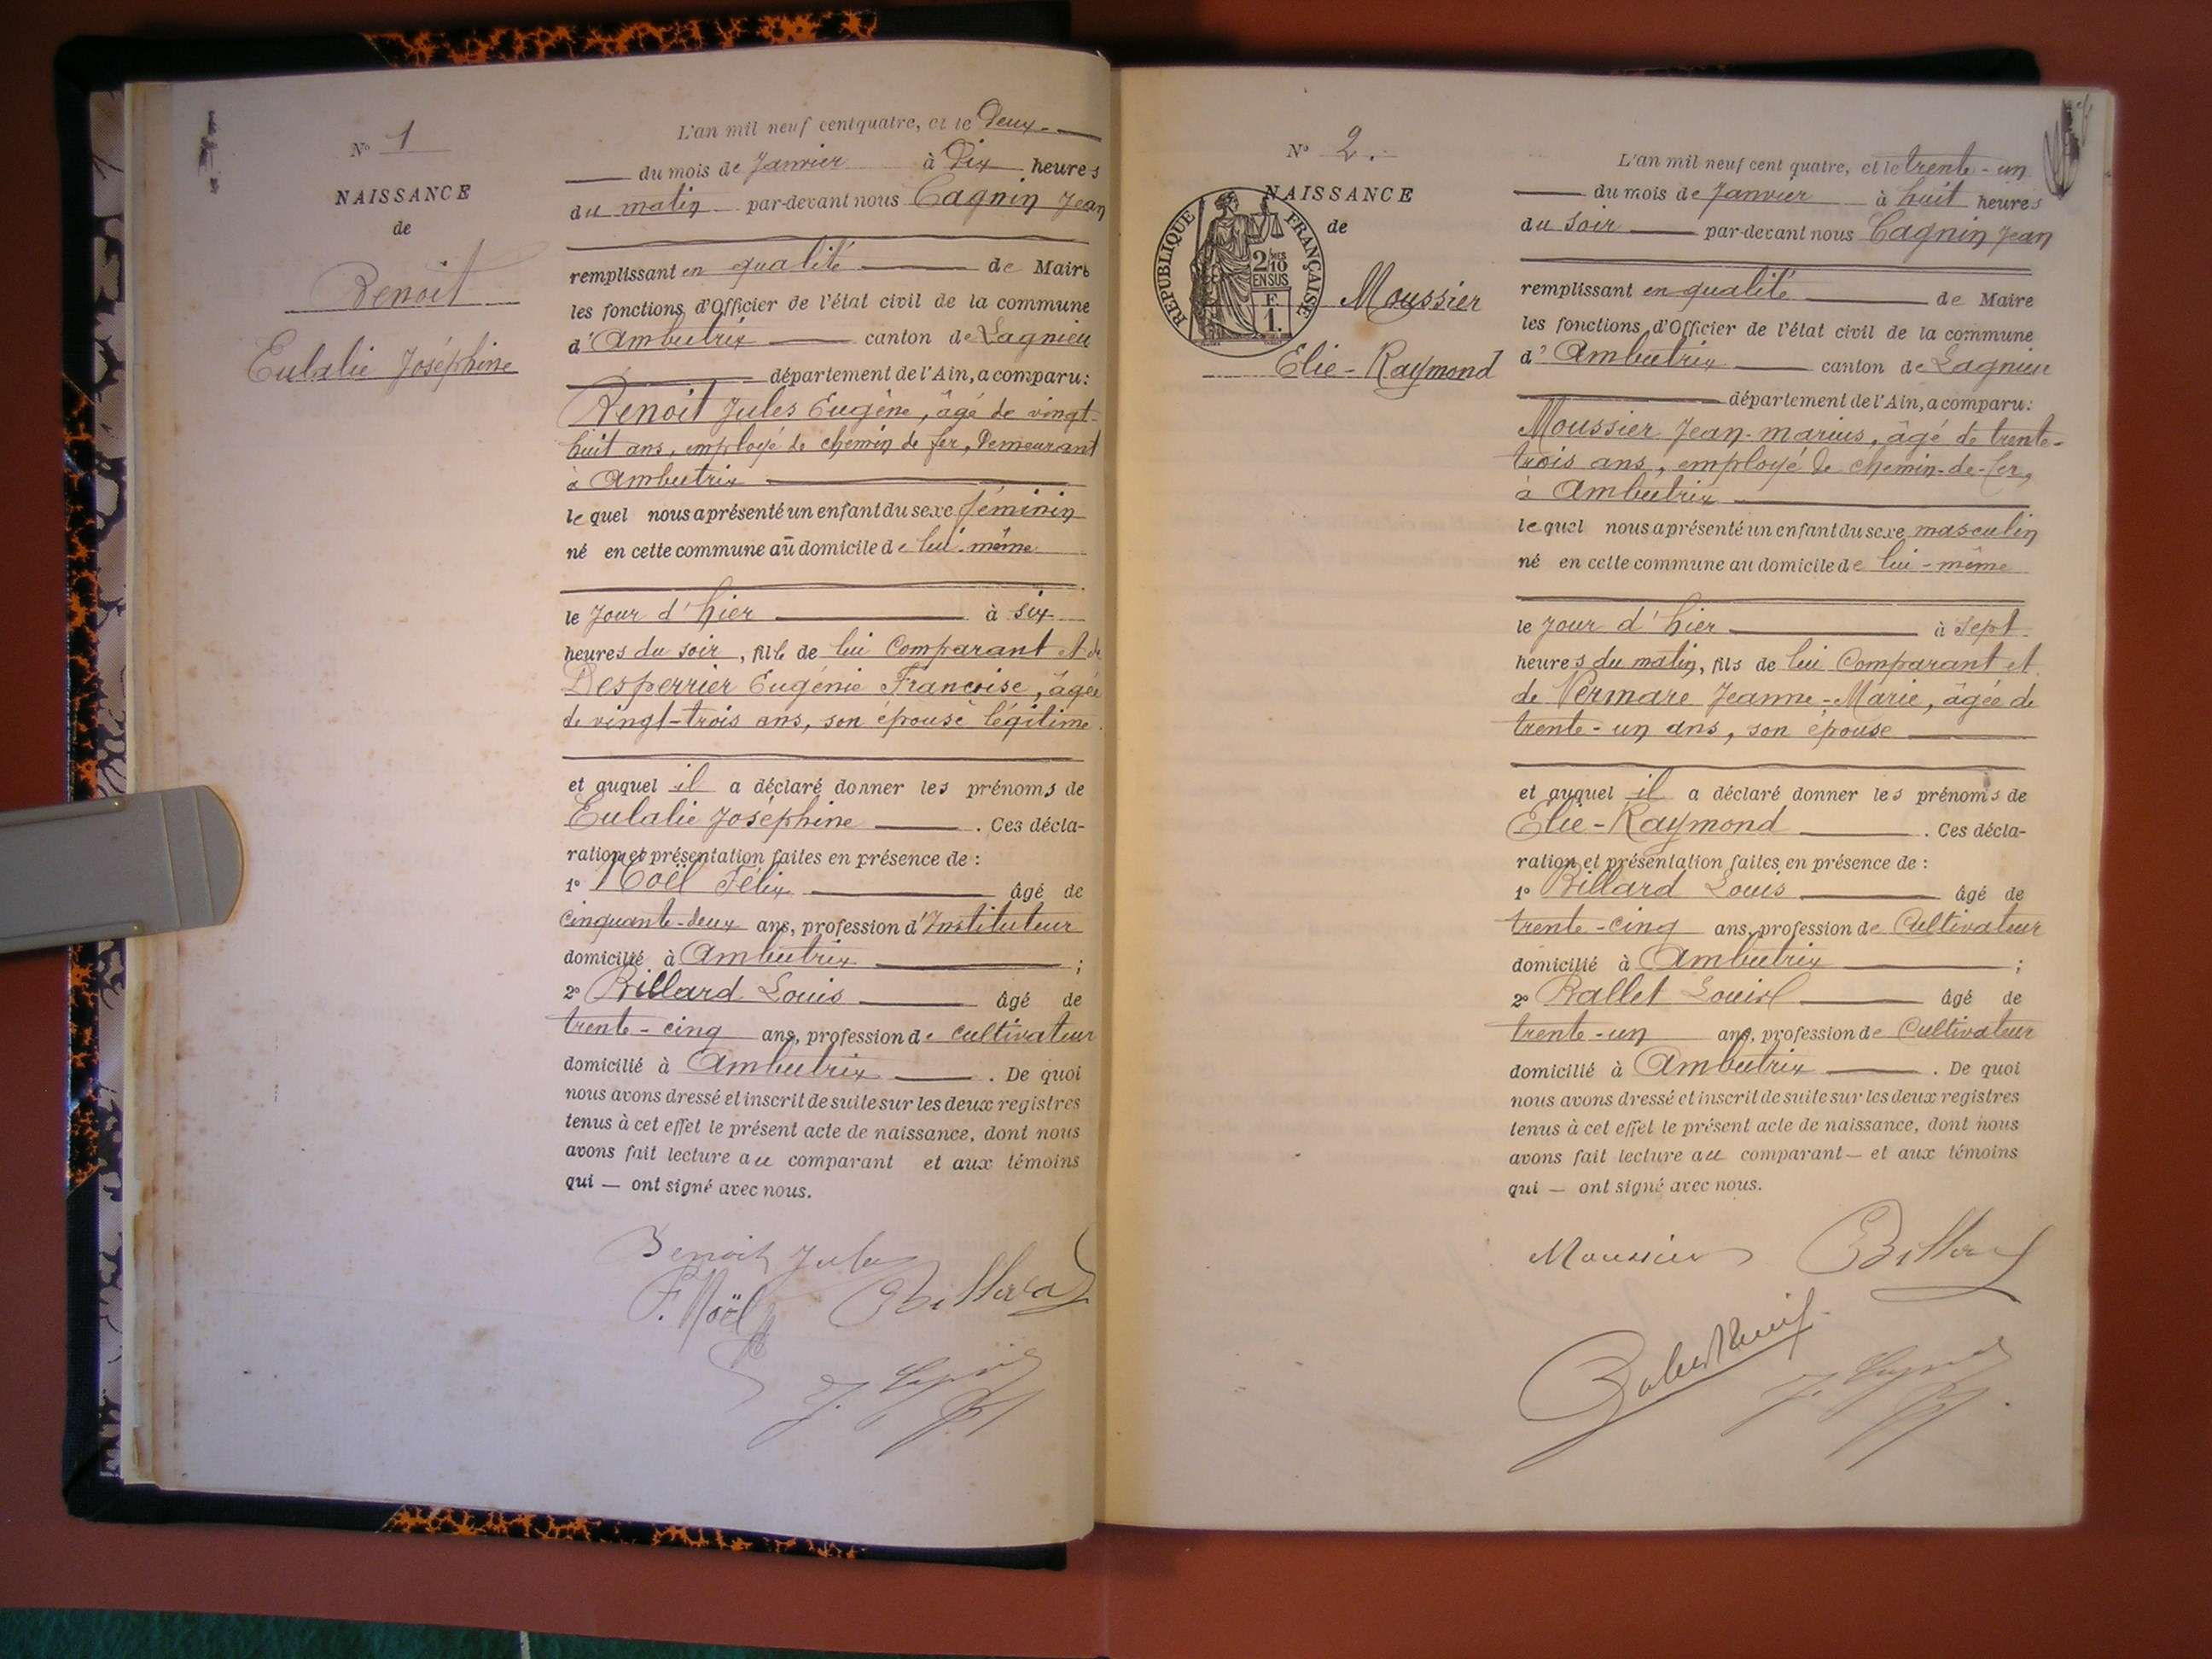 N° 1
NAISSANCE
de
Benoit
Eulalie Joséphine
L'an mil neuf cent quatre, et le Deux
du mois de Janvier à Dix heures
du matin par-devant nous Cagnin Jean
remplissant en qualité de Maire
les fonctions d'Officier de l'état civil de la commune
d'Ambutrix canton de Lagnieu
département de l'Ain, a comparu:
Benoit Jules Eugène, âgé de vingt-
huit ans, employé de chemin de fer, Demeurant
à Ambutrix
lequel nous a présenté un enfant du sexe féminin
né en cette commune au domicile de lui-même
le Jour d'hier à six
heures du soir, fille de lui Comparant et de
Desperrier Eugénie Françoise, âgée
de vingt-trois ans, son épouse légitime.
et auquel il a déclaré donner les prénoms de
Eulalie Joséphine. Ces décla-
ration et présentation faites en présence de :
1° Noël Félix âgé de
cinquante-deux ans, profession d'Instituteur
domicilié à Ambutrix ;
2° Billard Louis âgé de
trente-cinq ans, profession de cultivateur
domicilié à Ambutrix. De quoi
nous avons dressé et inscrit de suite sur les deux registres
tenus à cet effet le présent acte de naissance, dont nous
avons fait lecture au comparant et aux témoins
qui — ont signé avec nous.
Benoit Jules
F. Noël Billard
N° 2.
NAISSANCE
de
RÉPUBLIQUE FRANÇAISE
2/10
EN SUS
F.
1.
Moussier
Elie-Raymond
L'an mil neuf cent quatre, et le trente-un
du mois de Janvier à huit heures
du soir par-devant nous Cagnin Jean
remplissant en qualité de Maire
les fonctions d'Officier de l'état civil de la commune
d'Ambutrix canton de Lagnieu
département de l'Ain, a comparu:
Moussier Jean-marius, âgé de trente-
trois ans, employé de chemin-de-fer,
à Ambutrix
lequel nous a présenté un enfant du sexe masculin
né en cette commune au domicile de lui-même
le jour d'hier à sept
heures du matin, fils de lui Comparant et
de Vermare Jeanne-Marie, âgée de
trente-un ans, son épouse
et auquel il a déclaré donner les prénoms de
Elie-Raymond. Ces décla-
ration et présentation faites en présence de :
1° Billard Louis âgé de
trente-cinq ans, profession de Cultivateur
domicilié à Ambutrix ;
2° Ballet âgé de
trente-un ans, profession de Cultivateur
domicilié à Ambutrix. De quoi
nous avons dressé et inscrit de suite sur les deux registres
tenus à cet effet le présent acte de naissance, dont nous
avons fait lecture au comparant — et aux témoins
qui — ont signé avec nous.
Moussier Billard